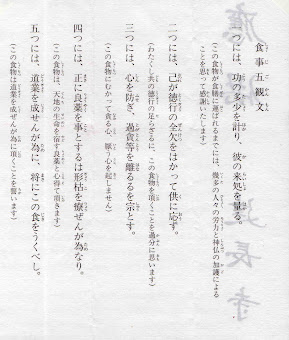 食事五観文
一つには、功の多少を計り、彼の来処を量る。
(この食物が食膳に運ばれるまでには、幾多の人々の労力と神仏の加護による
ことを思って感謝いたします)
二つには、己が徳行の全欠をはかって供に応ず。
(わたくし共の徳行の足らざるに、この食物を頂くことを過分に思います)
三つには、心を防ぎ、過貪等を離るるを宗とす。
(この食物にむかって貪る心、厭う心を起しません)
四つには、正に良薬を事とするは形枯を療ぜんが為なり。
(この食物は、天地の生命を宿す良薬と心得て頂きます)
五つには、道業を成ぜんが為に、将にこの食をうくべし。
(この食物は道業を成ぜんが為に頂くことを誓います)